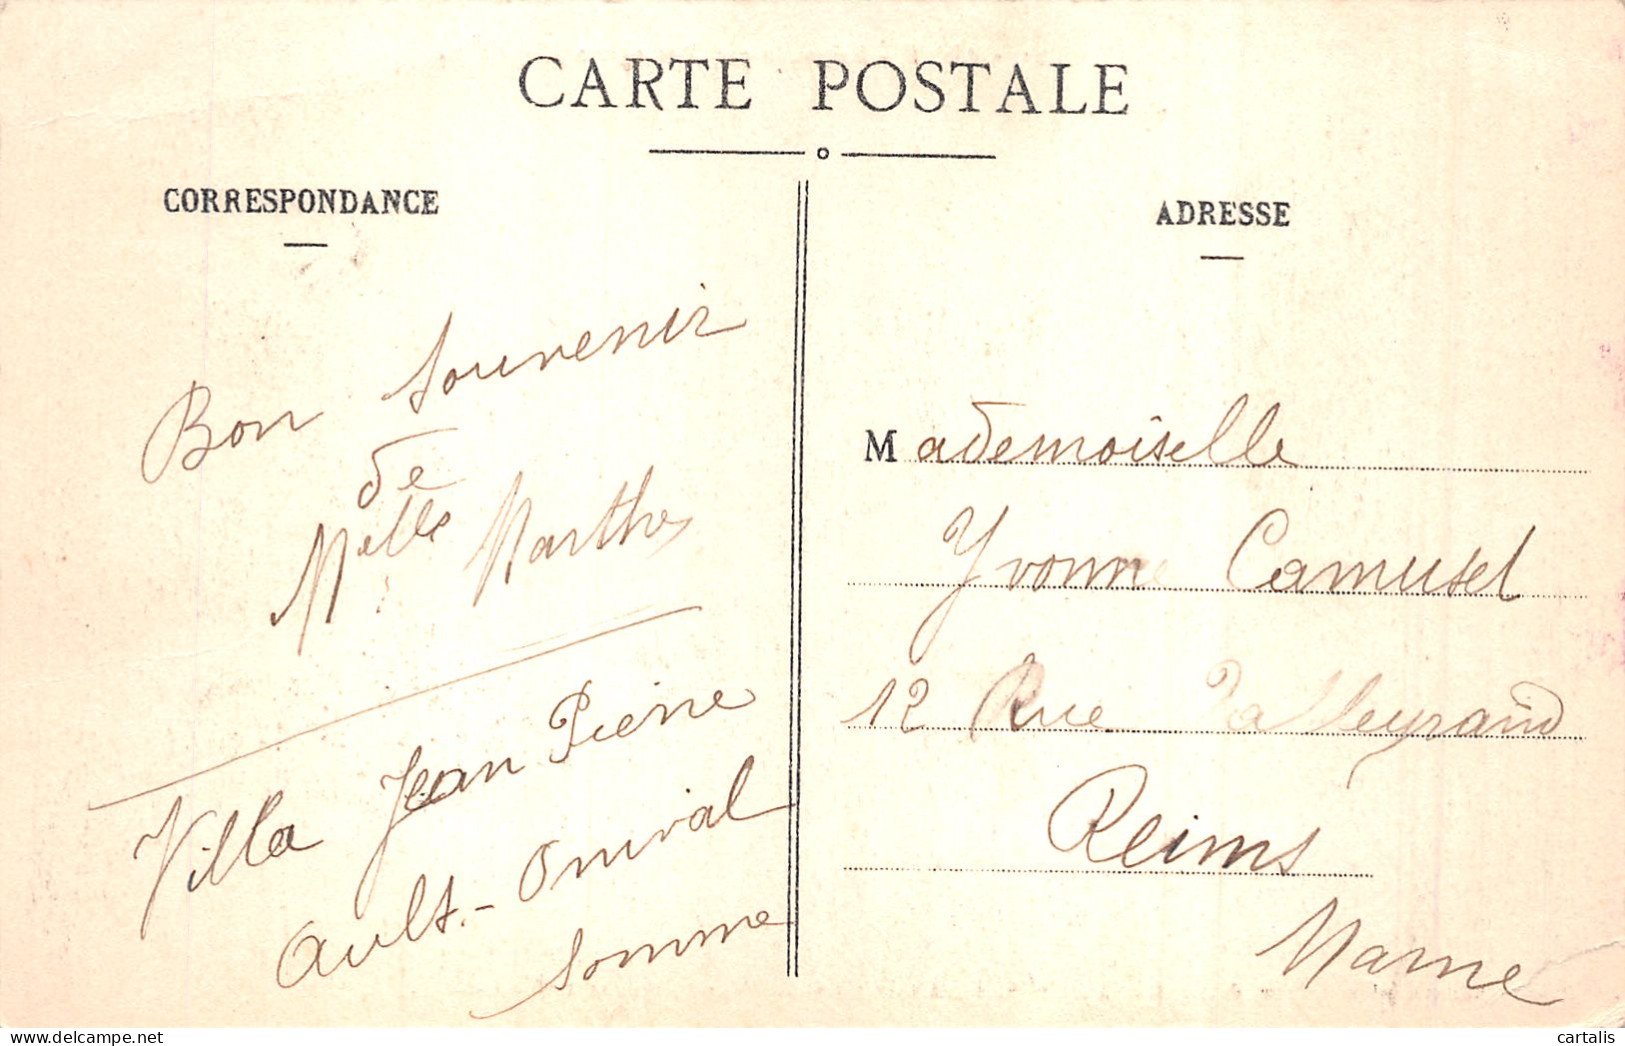 CARTE POSTALE
CORRESPONDANCE
Bon Souvenir
de
Melle Marthe
Villa Jean Pierre
Ault-Onival
Somme
ADRESSE
Mademoiselle
Yvonne Camusel
12 Rue Talleyrand
Reims
Marne
cartalis